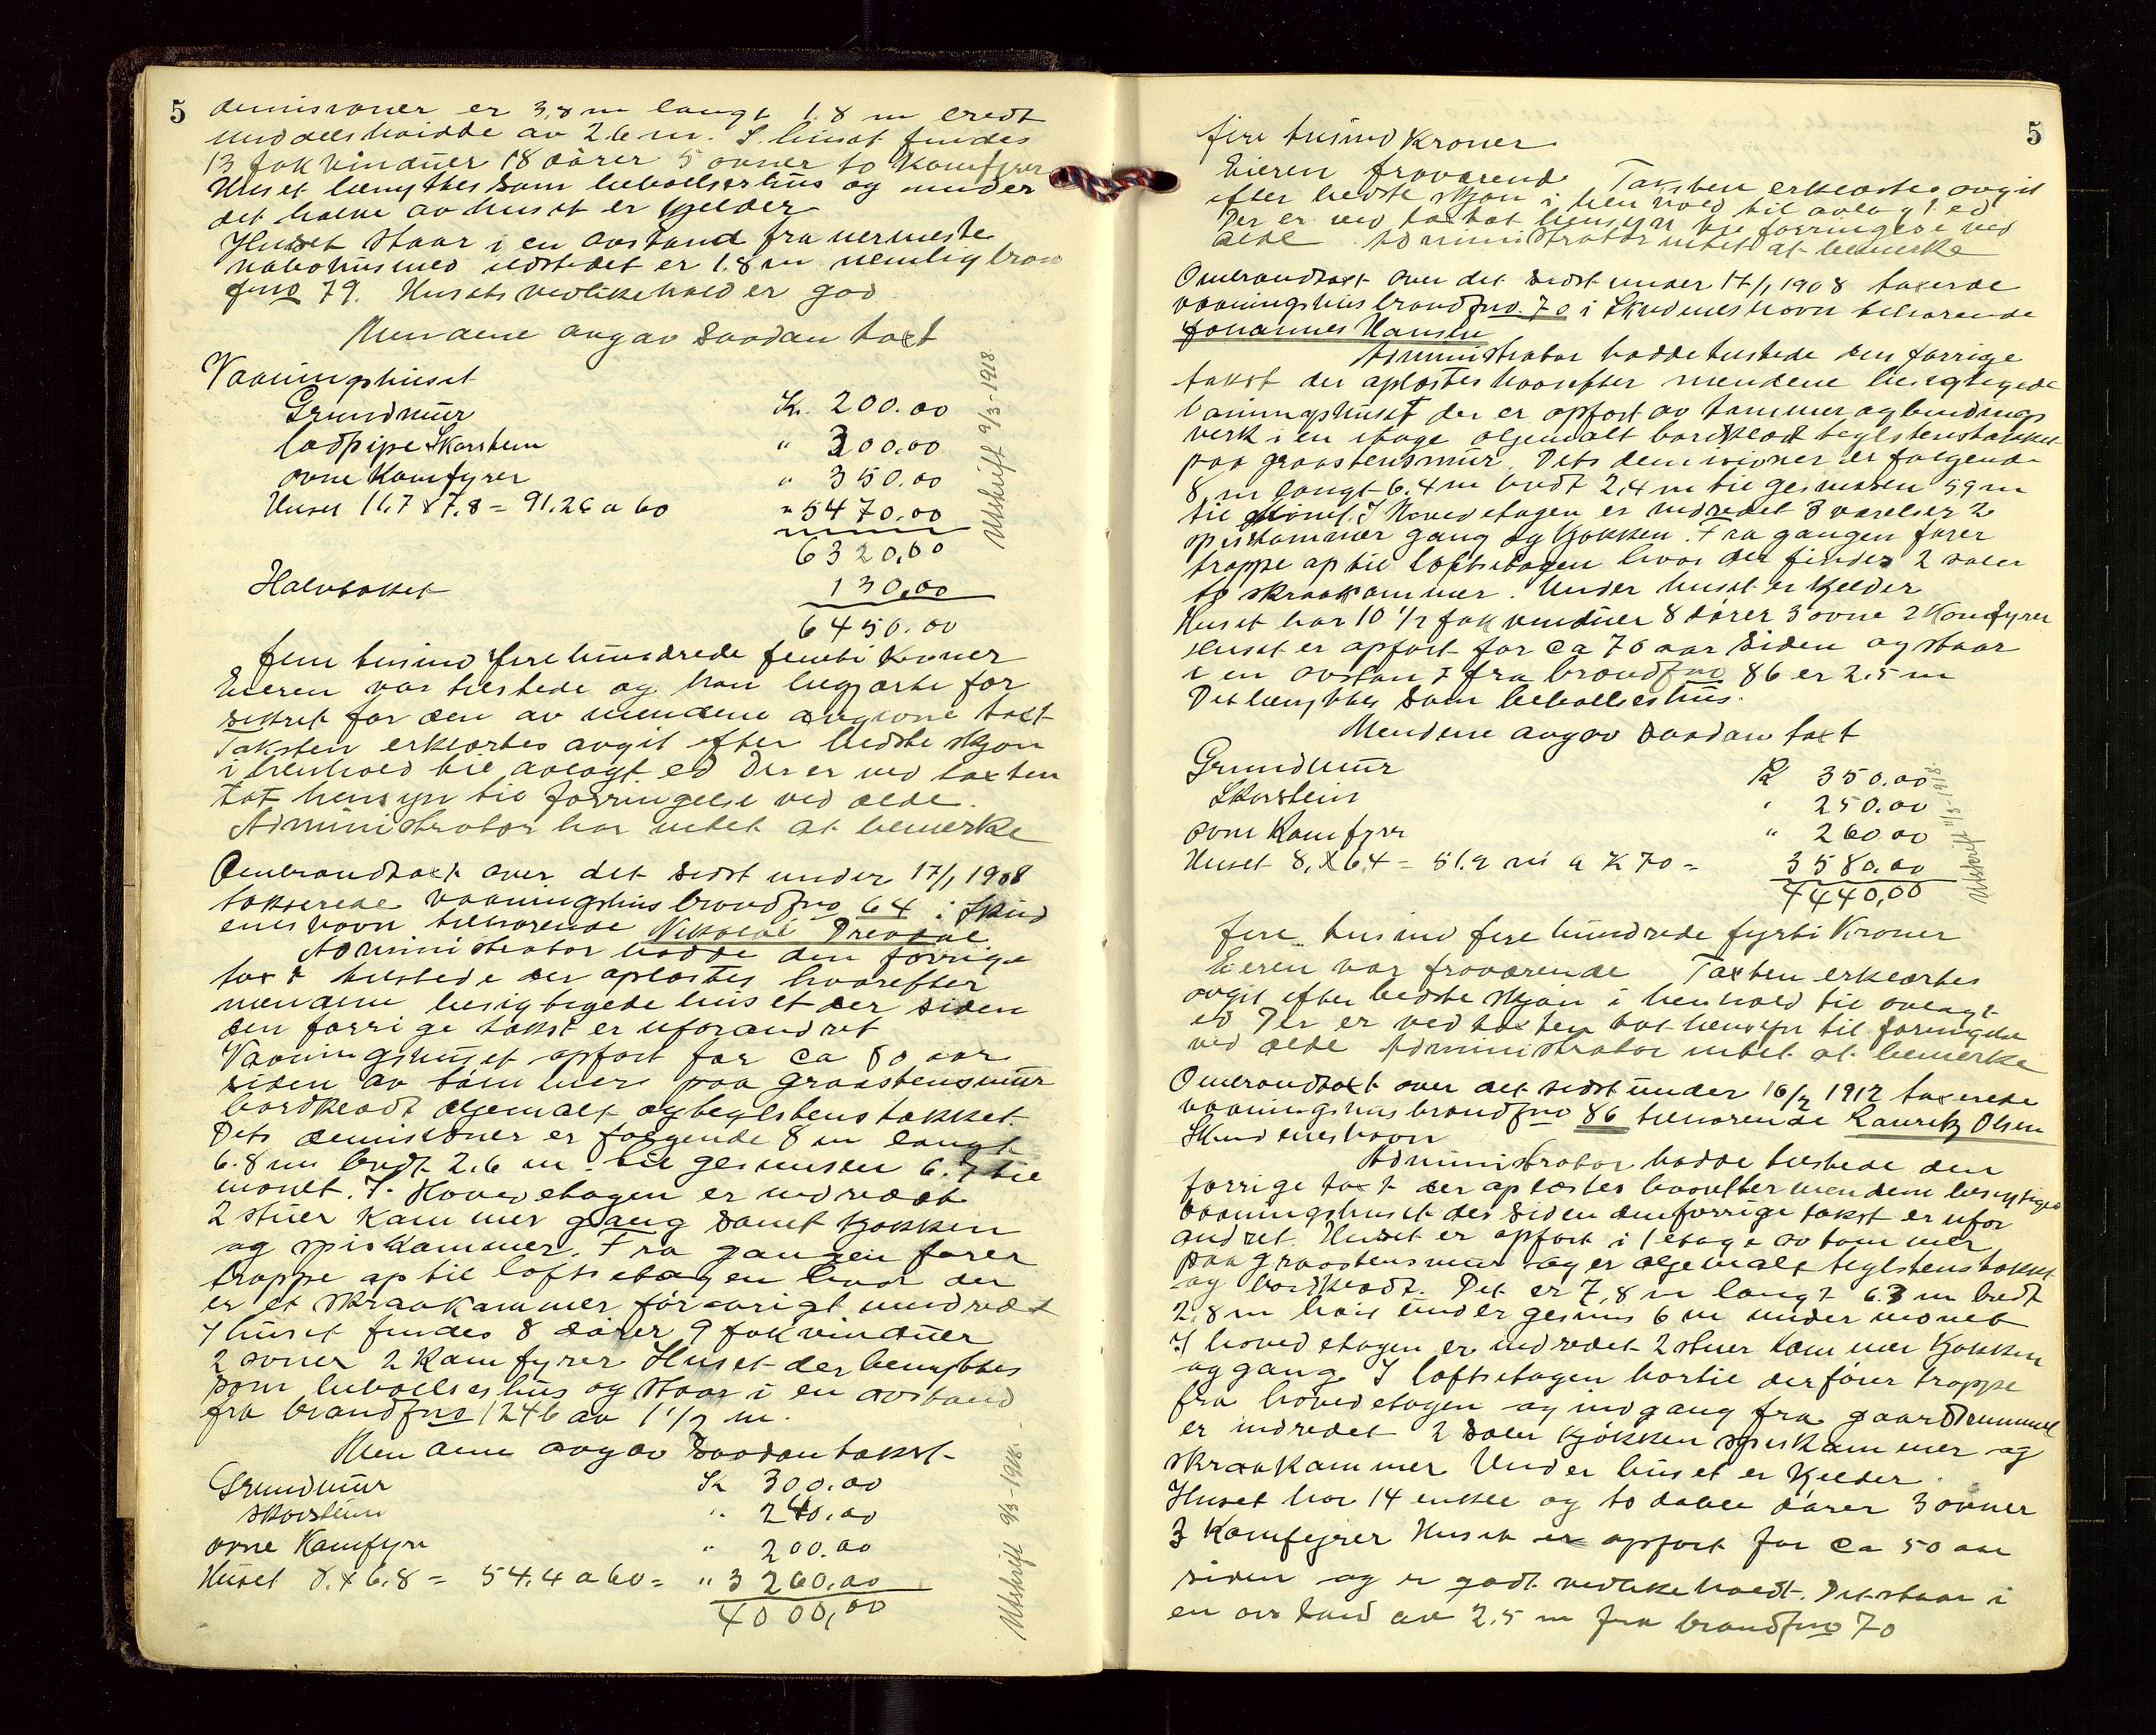 5
demisioner er 3,8 m langt 1.8 m bredt
middelshøidde av 2.6 m. I huset findes
13 fak vinduer 18 dører 5 ovner to Kamfyrer
Huset benyttes som beboelseshus og under
det halve av huset er Kjelder
Huset staar i en avstand fra nermeste
nabohus med ildsted et er 1.8 m nemlig bran
fno 79. Husets vedlikehold er god
Mendene avgav saadan taxt
Vaaningshuset
Grundmur Kr. 200.00
lodpipe Skorsten " 300.00
ovne Komfyrer " 350.00
Huset 11.7 x 7.8 = 91.26 a 60 " 5470.00
6320,00
Halvtaket 130,00
6450.00
Utskrift 9/3-1918
fem tusind fire hundrede femti Kroner
Eieren var tilstede og han begjærte for
sikret for den av mendene avgivne taxt
Taksten erklærtes avgit efter bedste skjøn
i henhold til avlagt ed Der er ved taxten
tat hensyn til forringelse ved ælde.
Administrator har intet at bemerke
Ombrandtaxt over det sidst under 17/1 1908
takserede vaaningshus brandfno 64 i Skud
eneshavn tilhørende Nikolai Prevdal
Administrator hadde den forrige
taxt tilstede der oplæstes hvorefter
mendene besigtigede huset der siden
den forrige takst er uforandret
Vaaningshuset opført for ca 80 aar
siden av tømmer paa graastensmur
bordklædt oljemalt og teglstenstakket.
Dets demisioner er følgende 8 m langt
6.8 m bredt 2.6 m til gesimsen 6.7 til
mønet. I Hovedetagen er indredet
2 stuer Kammer gang samt kjøkken
og spiskammer. Fra gangen fører
trappe op til loftsetagen hvor der
er et skraakammer forøvrigt uindredet
I huset findes 8 dører 9 fak vinduer
2 ovner 2 Kamfyrer Huset der benyttes
som beboelseshus og staar i en avstand
fra brandfno 124b av 1 1/2 m.
Mendene avgav saadan takst
Grundmur Kr 300.00
Skorsten " 240.00
ovne Kamfyr " 200.00
Huset 8. x 6.8 = 54.4 a 60 = " 3260.00
4000,00
Utskrift 9/3-1918.
5
fire tusind Kroner
Eieren fraværende Taksten erklærtes avgit
efter bedste skjøn i henhold til avlagt ed
Der er ved taxtat hensyn til forringelse ved
ælde Administrator intet at bemerke
Ombrandtaxt over det sidst under 17/1 1908 taxerede
vaaningshus brandfno. 70 i Skudeneshavn tilhørende
Johannes Hansen
Administrator hadde tilstede den forrige
takst der oplæstes hvorefter mendene besigtigede
vaaningshuset der er opført av tømmer og bindings
verk i en etage oljemalt bordklædt teglstenstakket
paa graastensmur. Dets demisioner er følgende
8 m langt 6.4 m bredt 2,4 m til gesimsen 5,9 m
til mønet. I Hovedetagen er indredet 3 værelser 2
spiskammer gang og Kjøkken. Fra gangen fører
trappe op til loftsetagen hvor der findes 2 saler
to skraakammer. Under huset er Kjelder
Huset har 10 1/2 fak vinduer 8 dører 3 ovne 2 Komfyrer
Huset er opført for ca 70 aar siden og staar
i en avstand fra brandfno 86 er 2.5 m
Det benyttes som beboelseshus.
Mendene avgav saadan taxt
Grundmur Kr 350.00
Skorstein " 250.00
ovne Komfyrer " 260.00
Huset 8. x 6.4 = 51.2 m a K 70 = 3580.00
4440,00
Utskrift 11/3-1918.
fire tusind fire hundrede fyrti Kroner
Eieren var fraværende Taxten erklærtes
avgit efter bedste skjøn i henhold til avlagt
ed Der er ved taxten tat hensyn til forringelse
ved ælde Administrator intet at bemerke
Ombrandtaxt over det sidst under 16/2 1912 taxerede
vaaningshus brandfno 86 tilhørende Lauritz Olsen
Skudeneshavn
Administrator hadde tilstede den
forrige taxt der oplæstes hvorefter mendene besigtiged
vaaningshuset der siden den forrige takst er ufor
andret. Huset er opført i 1 etage av tømmer
paa graastensmur og er oljemalt teglstenstakket
og bordklædt. Det er 7,8 m langt 6.3 m bredt
2,8 m høit under gesims 6 m under mønet
I hovedetagen er indredet 2 stuer kammer Kjøkken
og gang I loftsetagen hortil der fører trappe
fra hovedetagen og indgang fra gaardsrummet
er indredet 2 saler kjøkken spiskammer og
skraakammer Under huset er Kjelder.
Huset har 14 enkle og to doble dører 3 ovner
3 Komfyrer Huset er opført for ca 50 aar
siden og er godt vedlikeholdt. Det staar i
en avstand av 2.5 m fra brandfno 70